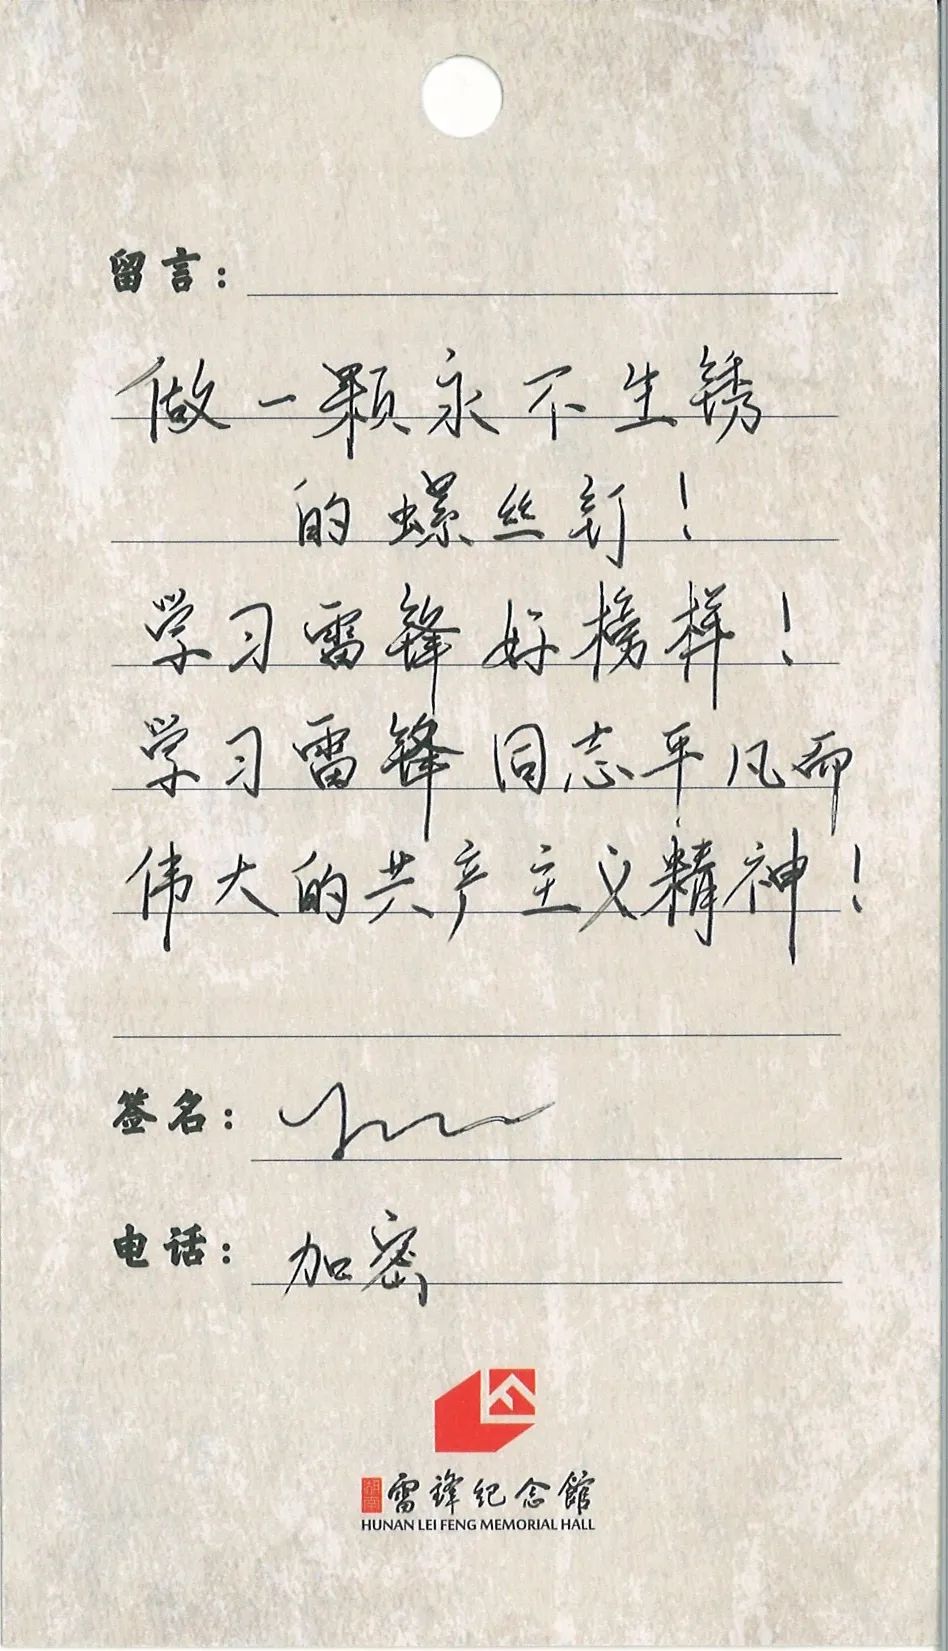 留言：
做一颗永不生锈
的螺丝钉！
学习雷锋好榜样！
学习雷锋同志平凡而
伟大的共产主义精神！
签名：
电话：加密
湖南雷锋纪念馆
HUNAN LEI FENG MEMORIAL HALL